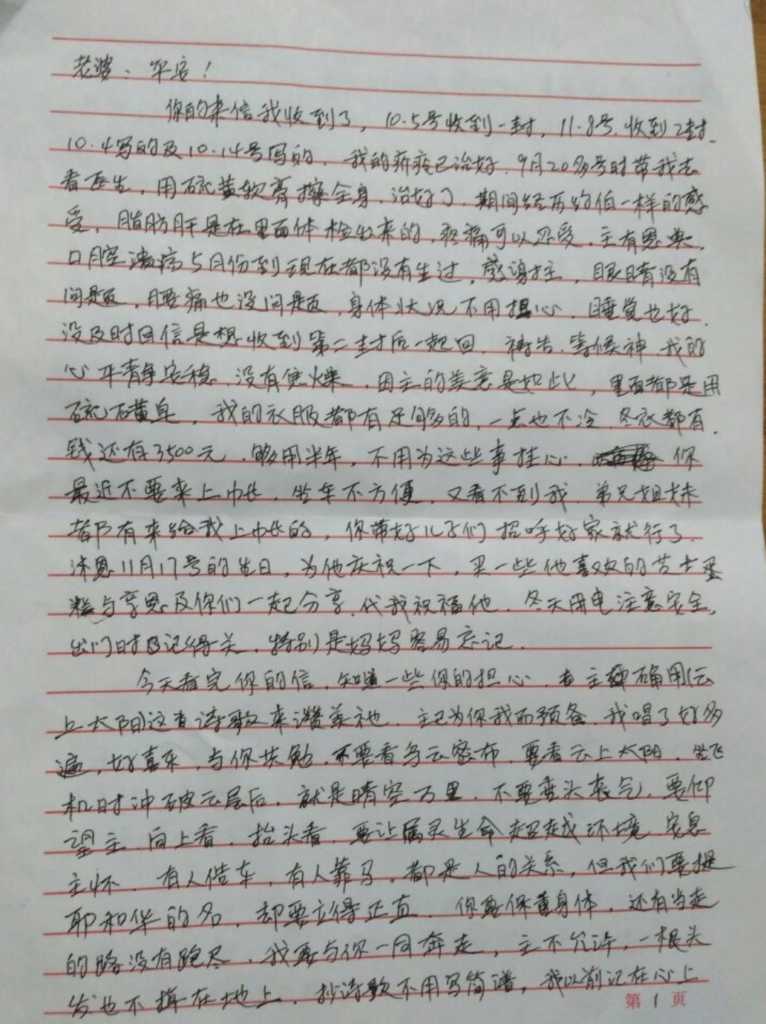 老婆、平安！
你的来信我收到了，10.5号收到一封，11.8号收到2封.
10.4写的及10.14号写的，我的疥疮已治好，9月20多号时带我去
看医生，用硫黄软膏擦全身，治好了，期间经历约伯一样的感
受，脂肪肝是在里面体检出来的，疼痛可以忍受，主有恩典，
口腔溃疡5月份到现在都没有生过，感谢主，眼睛没有
问题，腰痛也没问题，身体状况不用担心，睡觉也好.
没及时回信是想收到第二封后一起回，祷告，等候神，我的
心平静安稳，没有焦燥，因主的美意是如此，里面都是用
硫磺皂，我的衣服都有足够的，一点也不冷，冬衣都有.
钱还有3500元，够用半年，不用为这些事挂心，你
最近不要来上帐，坐车不方便，又看不到我，弟兄姐妹
都有来给我上帐的，你带好儿子们招呼好家就行了.
沐恩11月17号的生日，为他庆祝一下，买一些他喜欢的芝士蛋
糕与享恩及你们一起分享，代我祝福他，冬天用电注意安全，
出门时记得关，特别是妈妈容易忘记.
今天看完你的信，知道一些你的担心，主确用云
上太阳这首诗歌来讚美祂，主已为你我而预备，我唱了好多
遍，好喜乐，与你共勉，不要看乌云密布，要看云上太阳，坐飞
机时冲破云层后，就是晴空万里，不要垂头丧气，要仰
望主，向上看，抬头看，要让属灵生命超越环境，安息
主怀，有人借车，有人靠马，都是人的关系，但我们要提
耶和华的名，却要立得正直，你要保重身体，还有当走
的路没有跑尽，我要与你一同奔走，主不允许，一根头
发也不掉在地上，抄诗歌不用写简谱，我以前记在心上
第 1 页